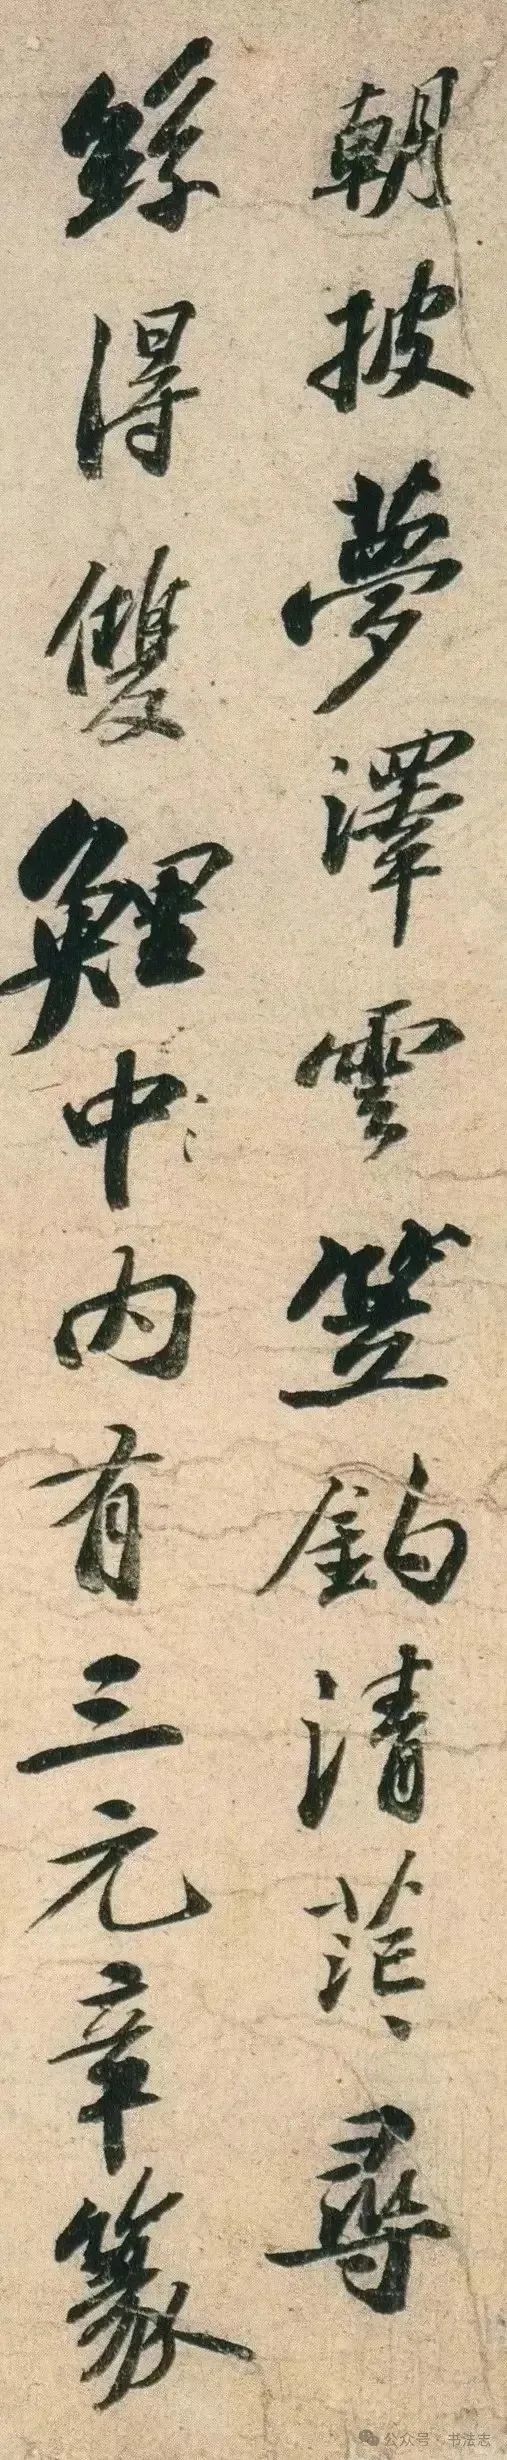 朝披夢澤雲笠釣清茫〻尋
絲得雙鯉中〻内有三元章篆
公众号·书法志